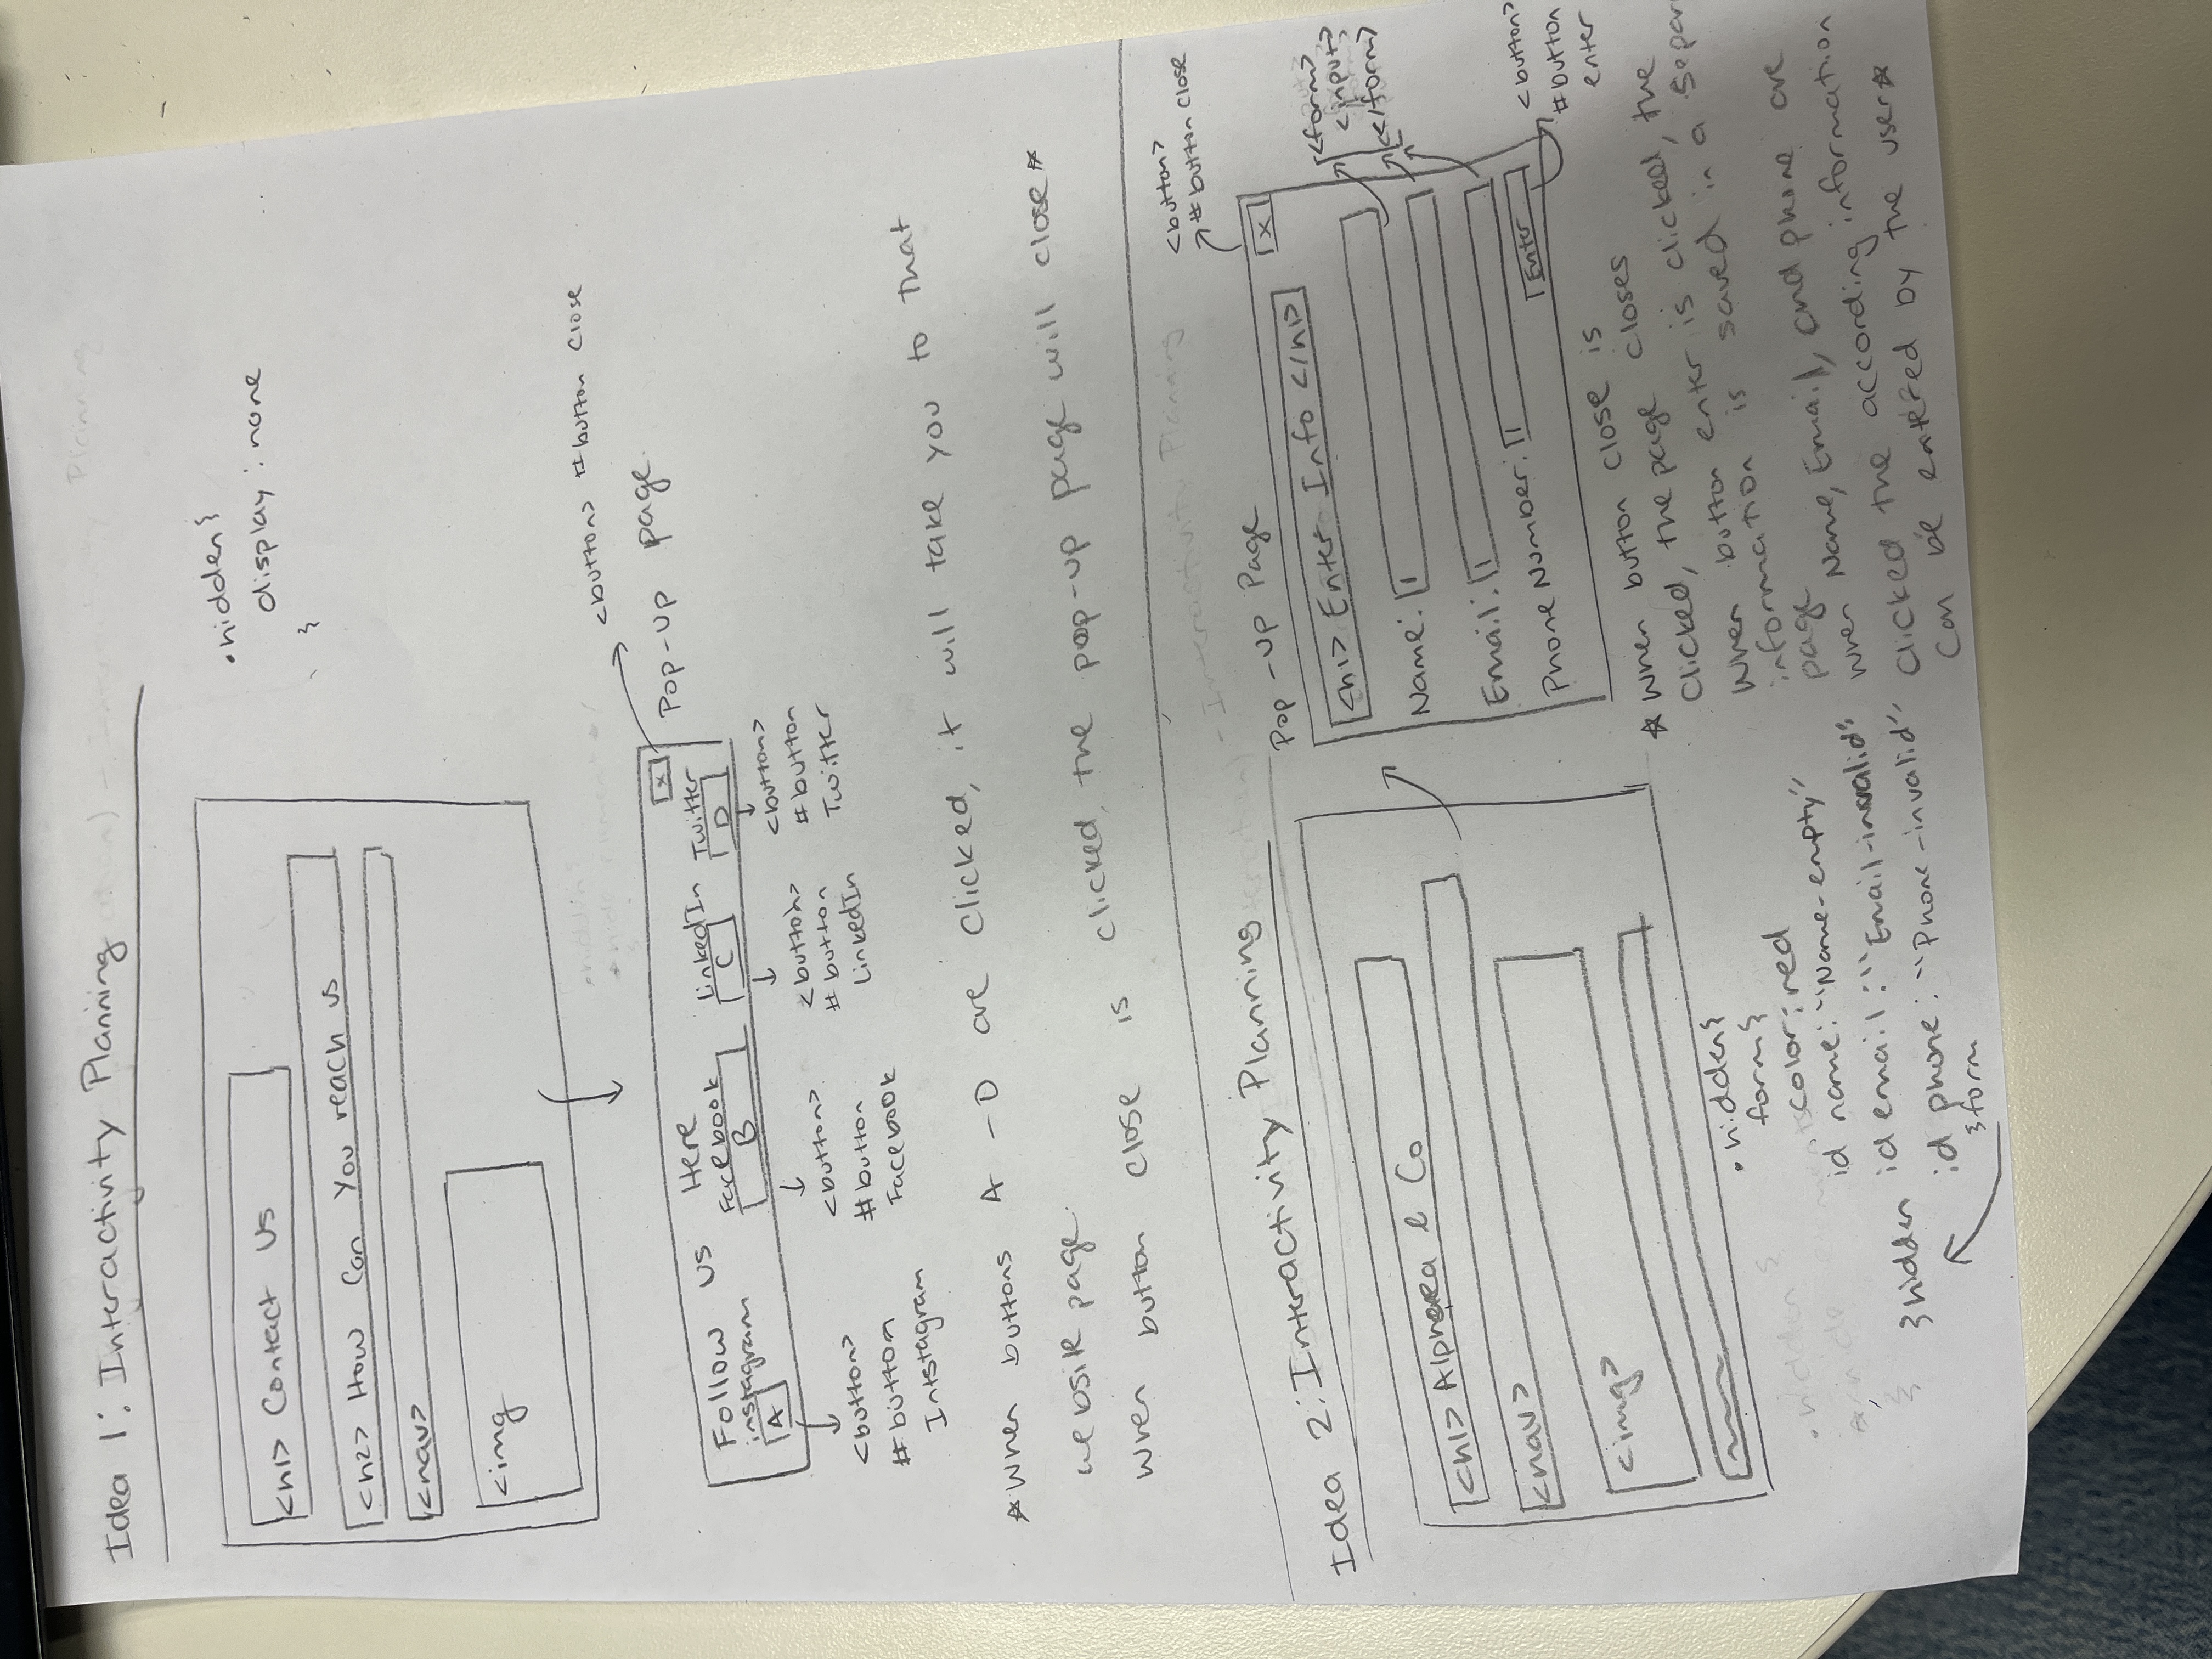 Idea 1: Interactivity Planning
.hidden{
display: none
}
<h1> Contact Us
<h2> How Can You reach us
<nav>
<img
<button> #button close
Pop-up page.
x
Follow us Here
instagram
A
Facebook
B
LinkedIn
C
Twitter
D
<button>
#button
Intstagram
<button>
#button
Facebook
<button>
#button
LinkedIn
<button>
#button
Twitter
*When buttons A-D are clicked, it will take you to that
website page.
When button close is clicked, the pop-up page will close*
Idea 2: Interactivity Planning
<h1> Alpharea & Co
<nav>
<img>
Pop-up Page
<button>
#button close
x
<h1> Enter Info </h1>
Name:
Email:
Phone Number:
Enter
<form>
<input>
</form>
<button>
#button
enter
.hidden{
form{
color: red
id name: "Name-empty"
id email: "Email-invalid"
id phone: "Phone-invalid"
}form
}hidden
*When button close is
clicked, the page closes
When button enter is clicked, the
information is saved in a separ
page
When Name, Email, and phone are
clicked the according information
can be entered by the user*